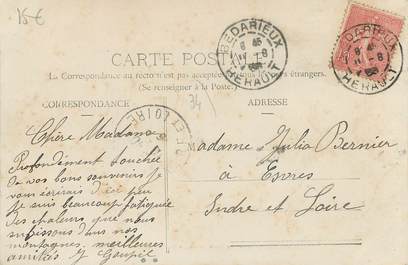 15€
CARTE POSTALE
La Correspondance au recto n'est pas acceptée par tous les pays étrangers.
(Se renseigner à la Poste.)
CORRESPONDANCE
ADRESSE
34
BEDARIEUX
HERAULT
BEDARIEUX
HERAULT
ET LOIRE
Chère Madame
Profondément touchée
de vos bons souvenirs je
vous écrirais d'ici peu
Je suis beaucoup fatiguée
des chaleurs que nous
subissons dans nos
montagnes, meilleures
amitiés J Goupil
Madame Julia Bernier
à Esvres
Indre et Loire